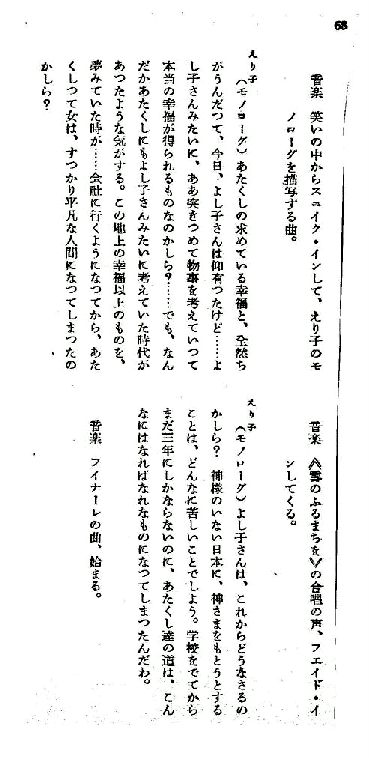 68
音楽　笑いの中からスニイク・インして、えり子のモ
ノローグを描写する曲。
えり子
（モノローグ）あたくしの求めている幸福と、全然ち
がうんだつて、今日、よし子さんは仰有つたけど……よ
し子さんみたいに、ああ突きつめて物事を考えていつて
本当の幸福が得られるものなのかしら？……でも、なん
だかあたくしにもよし子さんみたいに考えていた時代が
あつたような気がする。この地上の幸福以上のものを、
夢みていた時が……会社に行くようになつてから、あた
くしつて女は、すつかり平凡な人間になつてしまつたの
かしら？
音楽　《雪のふるまちを》の合唱の声、フエイド・イ
ンしてくる。
えり子
（モノローグ）よし子さんは、これからどうなさるの
かしら？　神様のいない日本に、神さまをもとうとする
ことは、どんなに苦しいことでしよう。学校をでてから
まだ三年にしかならないのに、あたくし達の道は、こん
なにはなればなれなものになつてしまつたんだわ。
音楽　フイナーレの曲、始まる。